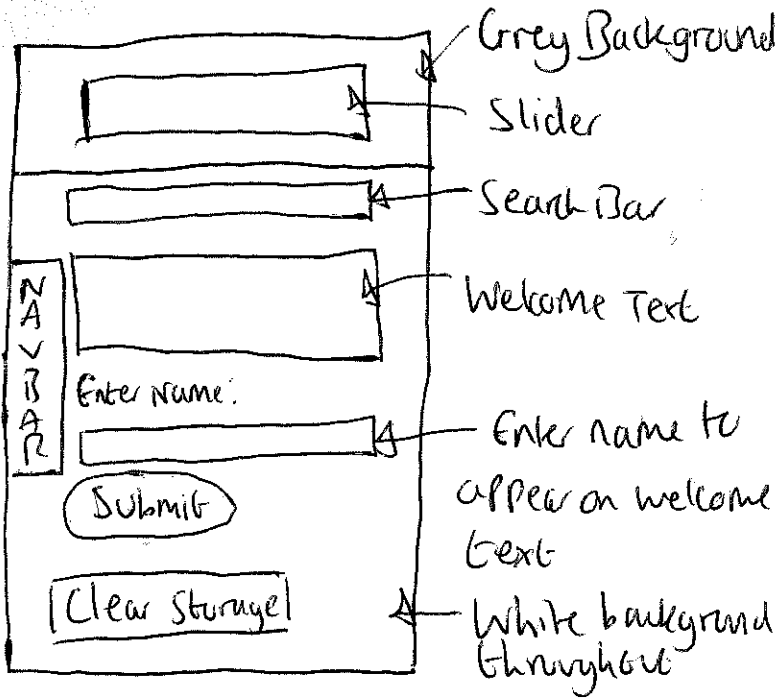 Grey Background
Slider
Search Bar
Welcome Text
NAVBAR
Enter Name:
Enter name to
appear on welcome
text
Submit
Clear Storage
White background
throughout